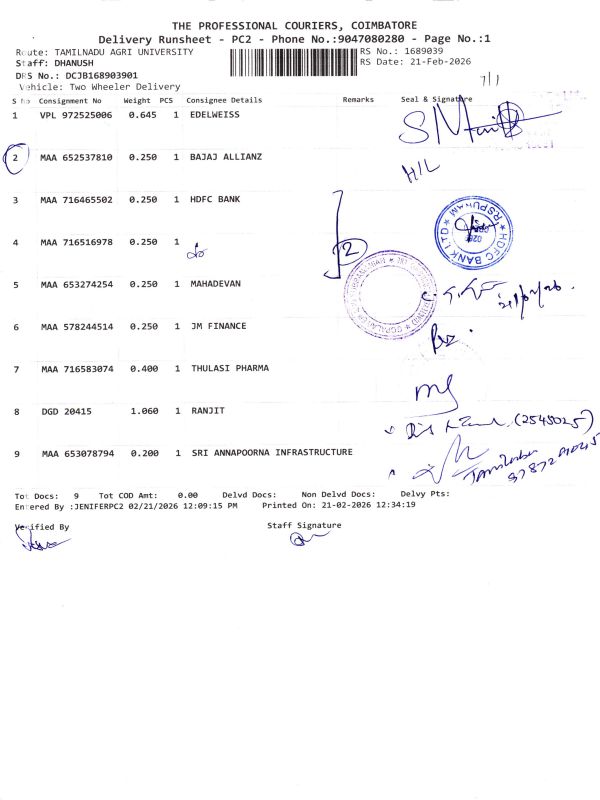 THE PROFESSIONAL COURIERS, COIMBATORE
Delivery Runsheet - PC2 - Phone No.:9047080280 - Page No.:1
Route: TAMILNADU AGRI UNIVERSITY
RS No.: 1689039
Staff: DHANUSH
RS Date: 21-Feb-2026
DRS No.: DCJB168903901
Vehicle: Two Wheeler Delivery
7/1
S No Consignment No Weight PCS Consignee Details Remarks Seal & Signature
1 VPL 972525006 0.645 1 EDELWEISS
2 MAA 652537810 0.250 1 BAJAJ ALLIANZ
H/L
3 MAA 716465502 0.250 1 HDFC BANK
HDFC BANK LTD RSPURAM
4 MAA 716516978 0.250 1
2
5 MAA 653274254 0.250 1 MAHADEVAN
6 MAA 578244514 0.250 1 JM FINANCE
7 MAA 716583074 0.400 1 THULASI PHARMA
8 DGD 20415 1.060 1 RANJIT
(2545025)
9 MAA 653078794 0.200 1 SRI ANNAPOORNA INFRASTRUCTURE
Tot Docs: 9 Tot COD Amt: 0.00 Delvd Docs: Non Delvd Docs: Delvy Pts:
Entered By :JENIFERPC2 02/21/2026 12:09:15 PM Printed On: 21-02-2026 12:34:19
Verified By Staff Signature